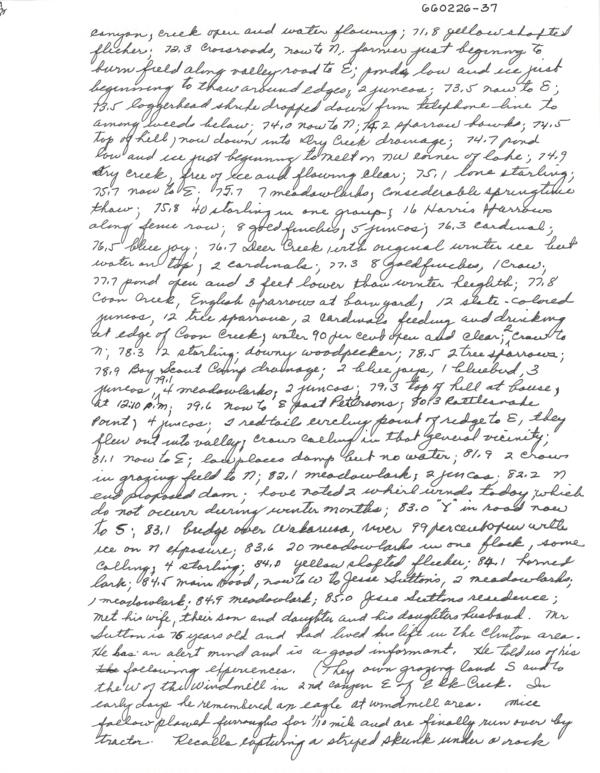 660226-37
canyon, creek open and water flowing; 71.8 yellow shafted
flicker; 72.3 crossroads, now to N, farmer just beginning to
burn field along valley road to E; ponds low and ice just
beginning to thaw around edges, 2 juncos; 73.5 now to E;
73.5 loggerhead shrike dropped down from telephone line to
among weeds below; 74.0 now to N; 74.2 sparrow hawks; 74.5
top of hill, now down into Dry Creek drainage; 74.7 pond
low and ice just beginning to melt on NW corner of lake; 74.9
Dry creek, free of ice and flowing clear; 75.1 lone starling;
75.7 now to E; 75.7 7 meadowlarks, considerable springtime
thaw; 75.8 40 starling in one group; 16 Harris Sparrows
along fence row; 8 goldfinches, 5 juncos; 76.3 cardinal;
76.5 blue jay; 76.7 Deer Creek with original winter ice but
water on top; 2 cardinals; 77.3 8 goldfinches, 1 crow;
77.7 pond open and 3 feet lower than winter heighth; 77.8
Coon Creek, English sparrows at barn yard, 12 slate-colored
juncos, 12 tree sparrows, 2 cardinals feeding and drinking
at edge of Coon Creek, water 90 per cent open and clear; 2 crow to
N; 78.3 12 starling; downy woodpecker; 78.5 2 tree sparrows;
78.9 Boy Scout Camp drainage; 2 blue jays, 1 bluebird, 3
juncos; 79.1 4 meadowlarks, 2 juncos; 79.3 top of hill at house,
at 12:10 P.M.; 79.6 now to E past Petersons; 80.3 Rattlesnake
Point, 4 juncos; 2 redtails circling point of ridge to E, they
flew out into valley; crows calling in that general vicinity;
81.1 now to E; low places damp but no water; 81.9 2 crows
in grazing field to N; 82.1 meadowlark; 2 juncos; 82.2 N
end proposed dam; have noted 2 whirl winds today, which
do not occurr during winter months; 83.0 "Y" in road now
to S; 83.1 bridge over Wakarusa, river 99 per cent open with
ice on N exposure; 83.6 20 meadowlarks in one flock, some
calling; 4 starling; 84.0 yellow shafted flicker; 84.1 horned
lark; 84.5 main road, now to W to Jesse Sutton's, 2 meadowlarks,
1 meadowlark; 84.9 meadowlark; 85.0 Jesse Suttons residence;
met his wife, their son and daughter and his daughters husband. Mr
Sutton is 75 years old and had lived his life in the Clinton area.
He has an alert mind and is a good informant. He told us of his
following experiences. (They own grazing land S and to
the W of the Windmill in 2nd canyon E of Elk Creek. In
early days he remembered an eagle at windmill area. Mice
follow plowed furroughs for 1/10 mile and are finally run over by
tractor. Recalls capturing a striped skunk under a rock